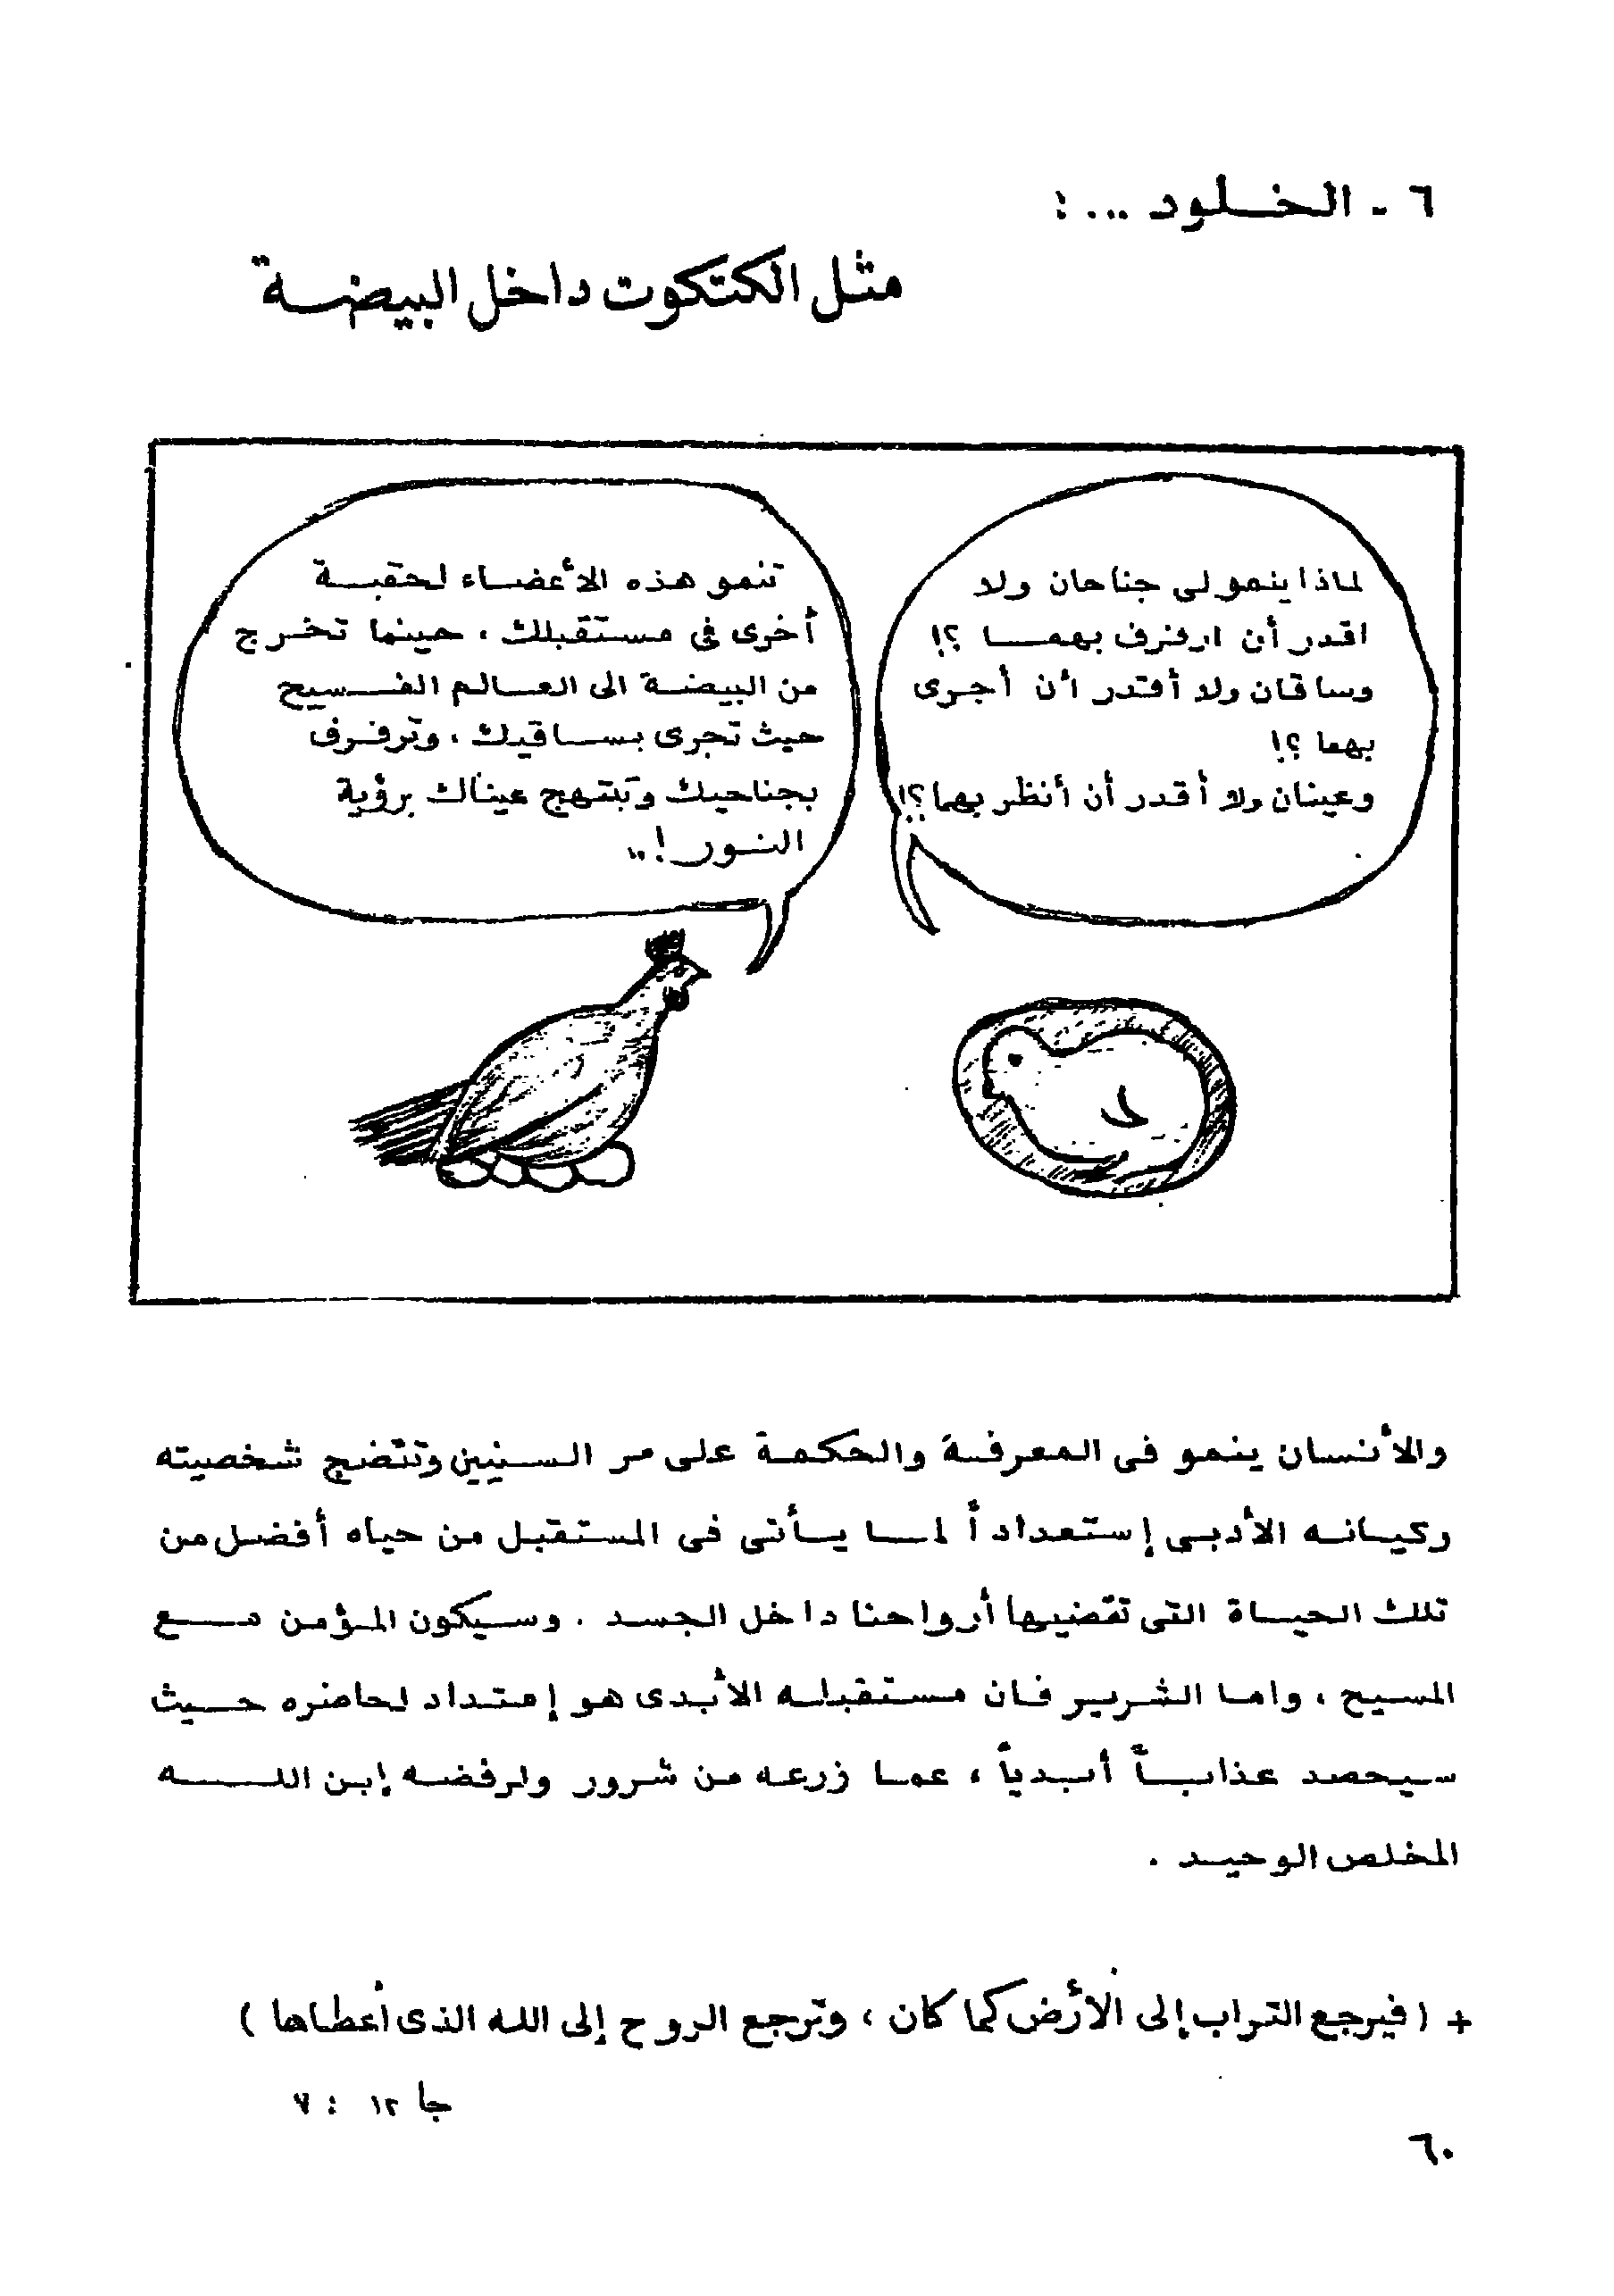 ٦ - الخلود ... :
مثل الكتكوت داخل البيضة
لماذا ينمو لى جناحان ولا
اقدر أن ارفرف بهما ؟!
وساقان ولا أقدر أن أجرى
بهما ؟!
وعينان ولا أقدر أن أنظر بهما ؟!
تنمو هذه الأعضاء لحقبة
أخرى فى مستقبلك ، حينما تخرج
من البيضة الى العالم الفسيح
حيث تجرى بساقيك ، وترفرف
بجناحيك وتبتهج عيناك برؤية
النور !..
والأنسان ينمو فى المعرفة والحكمة على مر السنين وتنضج شخصيته
وكيانه الأدبى إستعداداً لما يأتى فى المستقبل من حياه أفضل من
تلك الحياة التى تقضيها أرواحنا داخل الجسد . وسيكون المؤمن مع
المسيح ، واما الشرير فان مستقبله الأبدى هو إمتداد لحاضره حيث
سيحصد عذاباً أبدياً ، عما زرعه من شرور ولرفضه إبن الله
المخلص الوحيد .
+ ( فيرجع التراب إلى الأرض كما كان ، وترجع الروح إلى الله الذى أعطاها )
جا ١٢ : ٧
٦٠